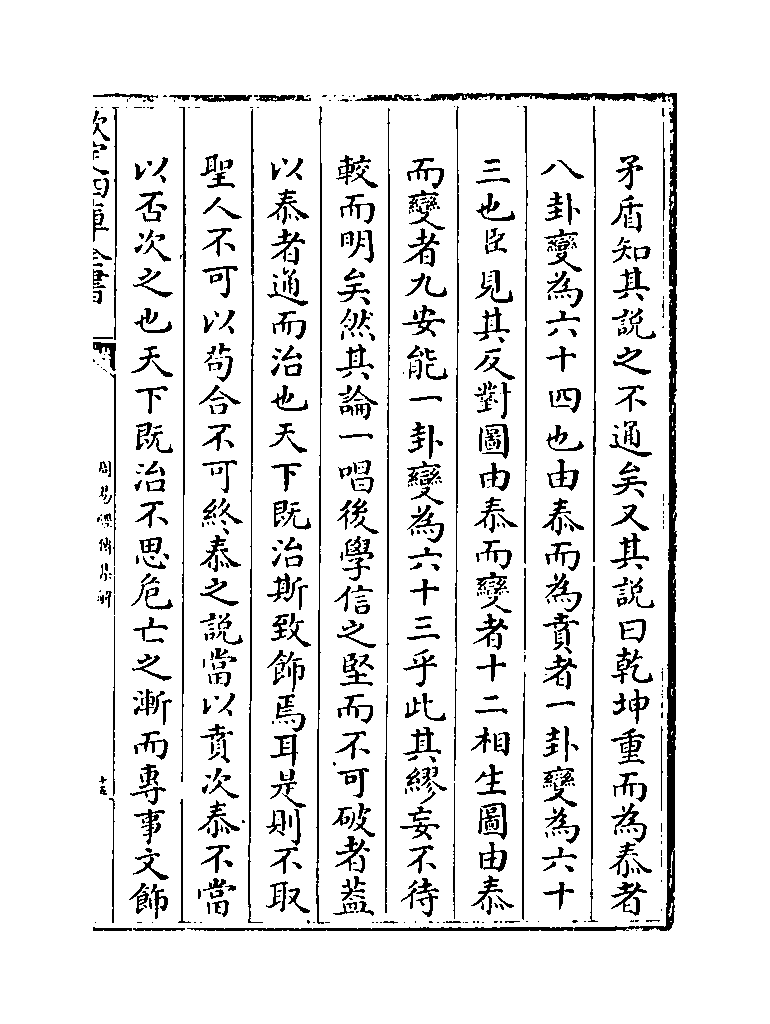 矛盾知其説之不通矣又其説曰乾坤重而為泰者
八卦變為六十四也由泰而為賁者一卦變為六十
三也臣見其反對圖由泰而變者十二相生圖由泰
而變者九安能一卦變為六十三乎此其繆妄不待
較而明矣然其論一唱後學信之堅而不可破者葢
以泰者通而治也天下既治斯致飾焉耳是則不取
聖人不可以茍合不可終泰之説當以賁次泰不當
以否次之也天下既治不思危亡之漸而專事文飾
欽定四庫全書
周易經傳集解
十五